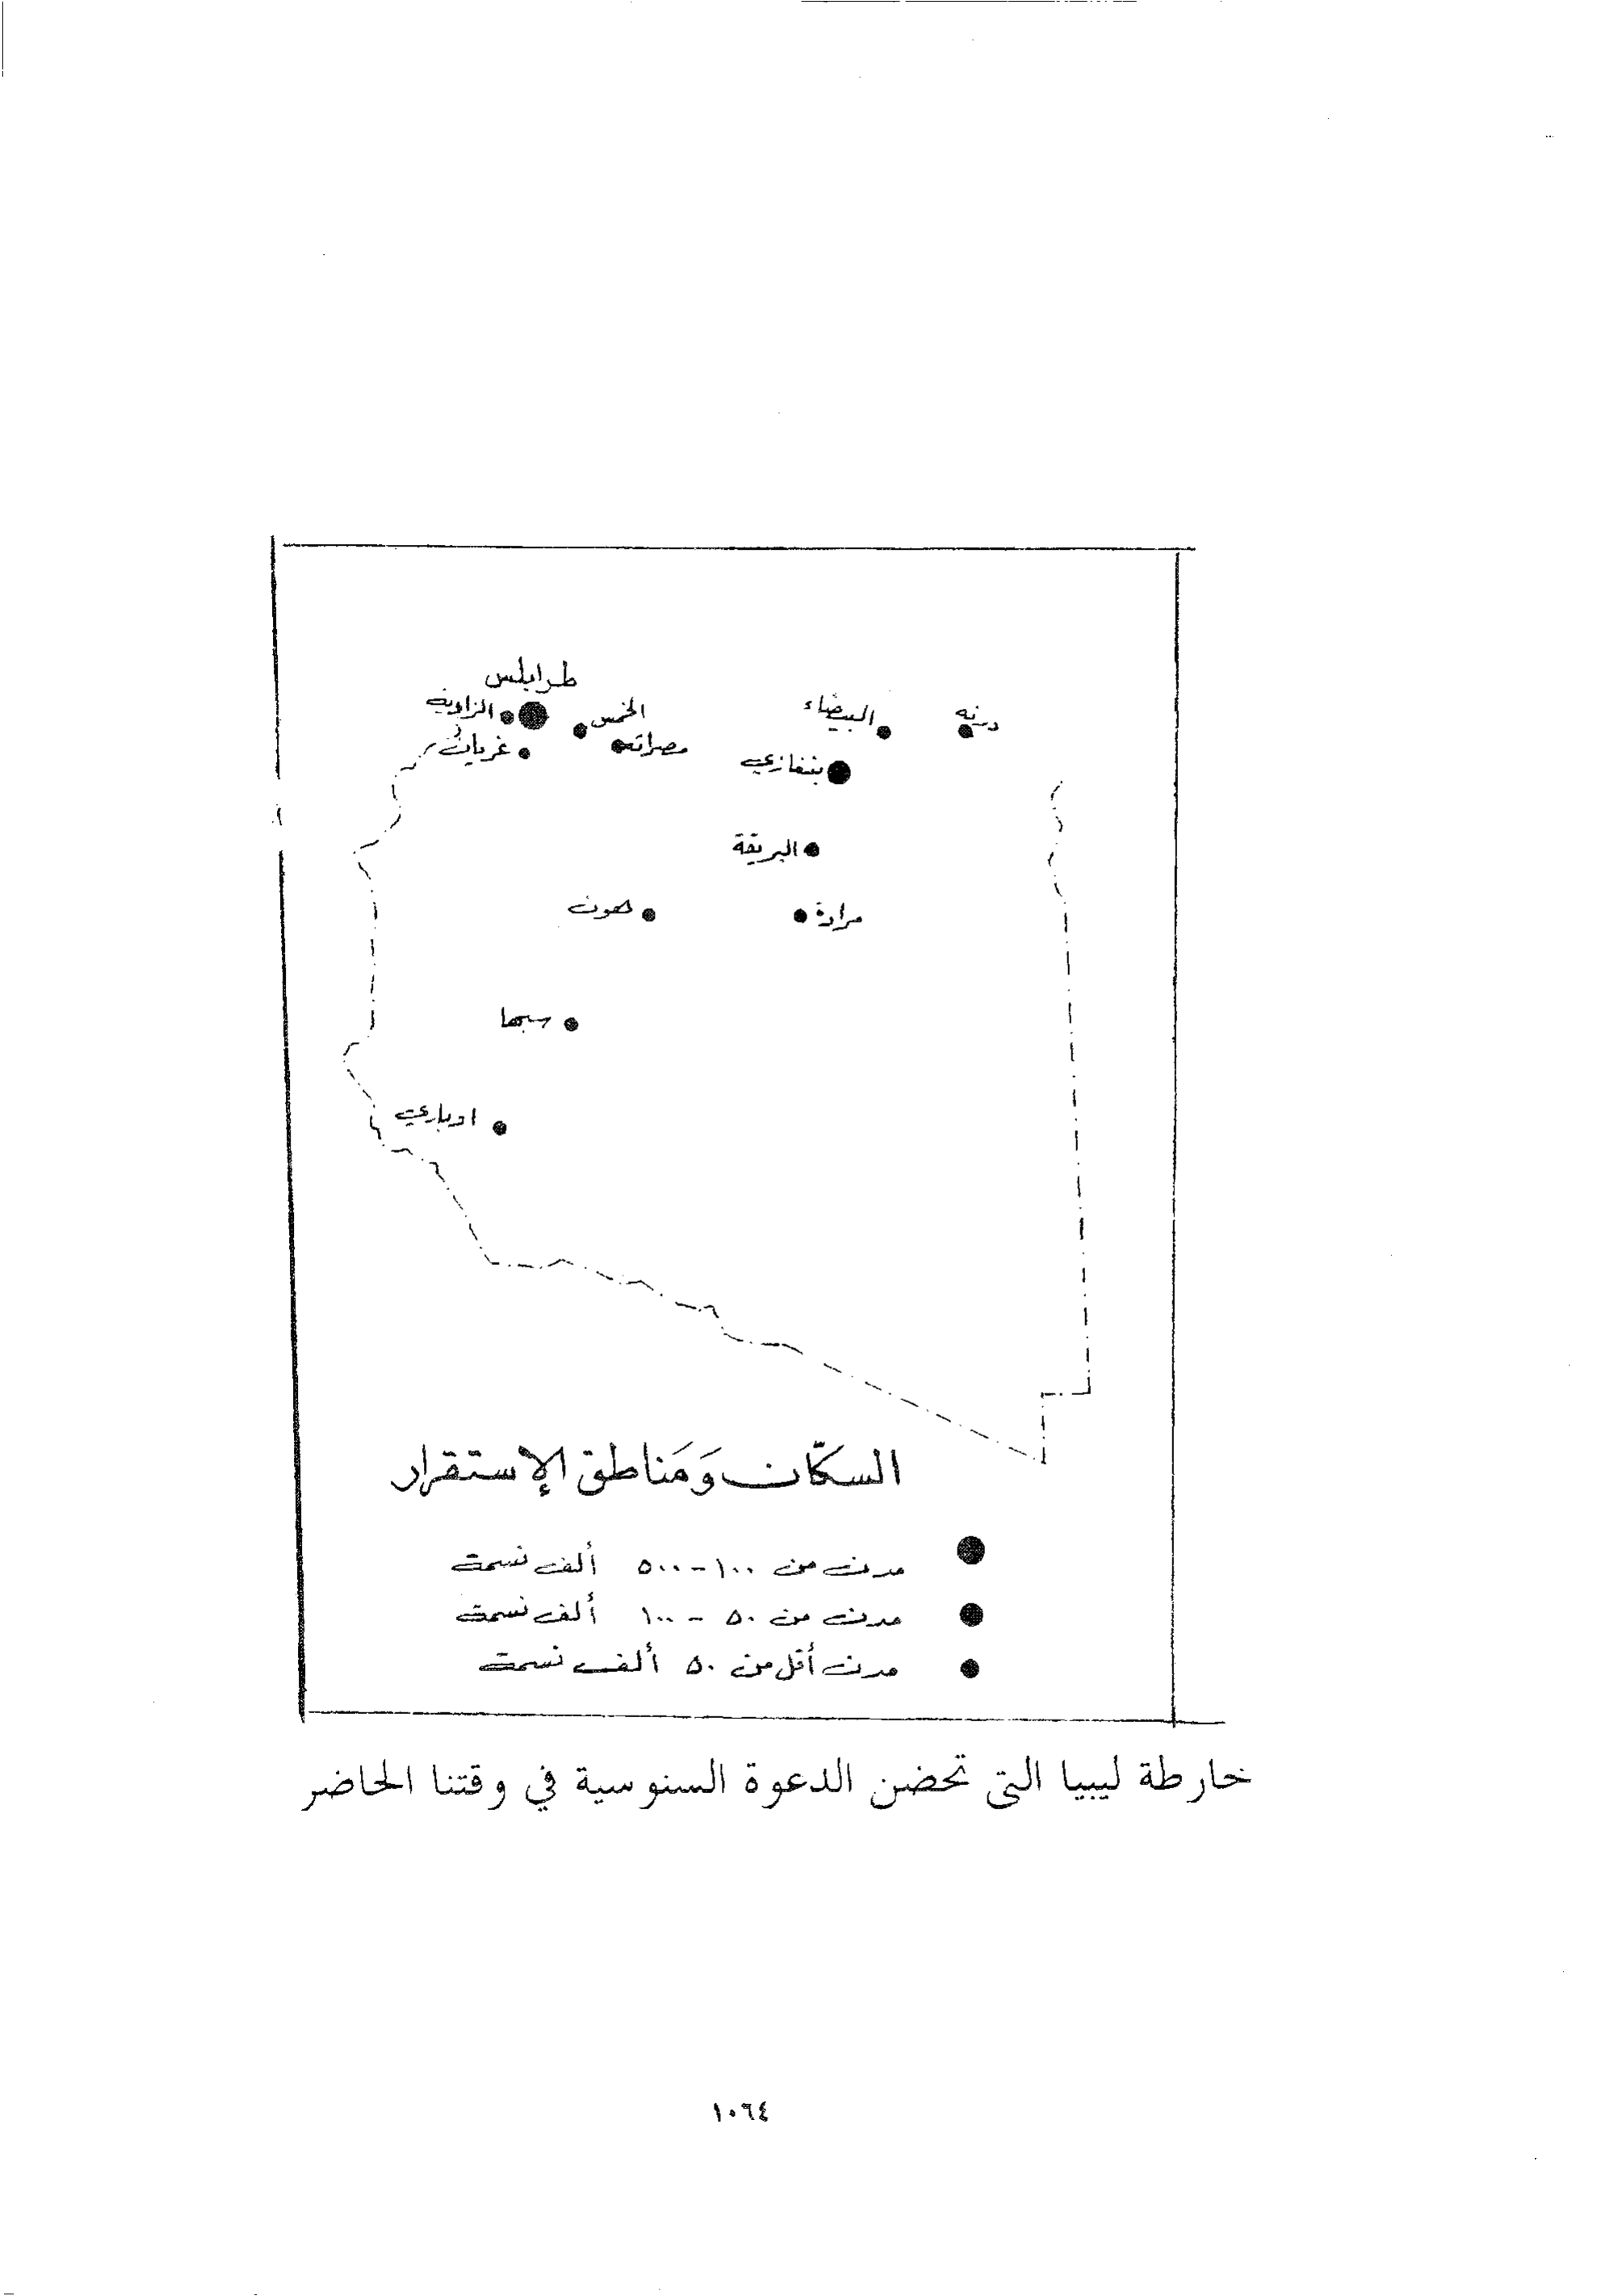 طرابلس
الزاوية
الخمس
البيضاء
درنه
غريان
مصراته
بنغازي
البريقة
هون
مرادة
سبها
اوباري
السكّان وَمَناطق الإستقرار
مدن من ١٠٠-٥٠٠ ألف نسمة
مدن من ٥٠ - ١٠٠ ألف نسمة
مدن أقل من ٥٠ ألف نسمة
خارطة ليبيا التي تحضن الدعوة السنوسية في وقتنا الحاضر
١٠٦٤